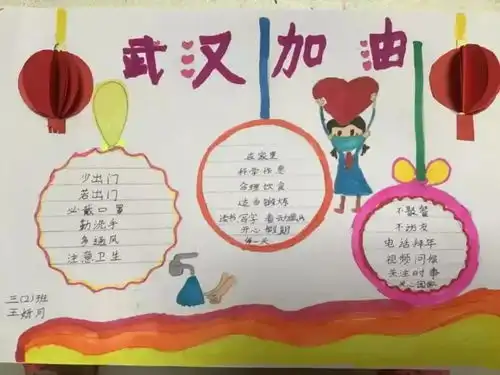 武汉加油
少出门
若出门
必戴口罩
勤洗手
多通风
注意卫生
在家里
科学作息
合理饮食
适当锻炼
读书写字 看动画片
开心假期
每一天
不聚餐
不访友
电话拜年
视频问候
关注时事
关心国家
三(2)班
王妍月